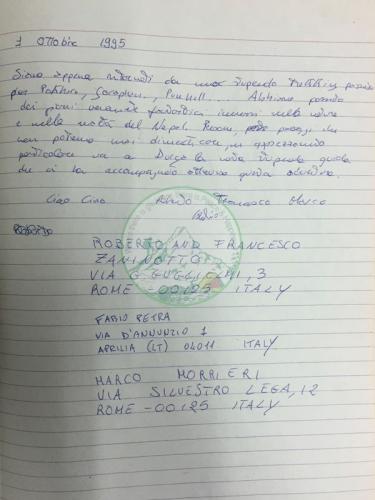 7 Ottobre 1995
Siamo appena ritornati da uno stupendo trekking passando
per Pokhara, Gorapani, Poonhill.... Abbiamo passato
dei giorni veramente fantastici immersi nella natura
e nella realtà del Nepal. Room, posti paesaggi che
non potremo mai dimenticare, un apprezzamento
particolare va a Durga la nostra stupenda guida
che ci ha accompagnato
Ciao Ciao Roberto Francesco Marco
Fabio
ROBERTO
ROBERTO AND FRANCESCO
ZANINOTTO
VIA G. GUGLIELMI, 3
ROME - 00125 ITALY
FABIO PETRA
VIA D'ANNUNZIO 1
APRILIA (LT) 04011 ITALY
MARCO MORRIERI
VIA SILVESTRO LEGA, 12
ROME - 00125 ITALY